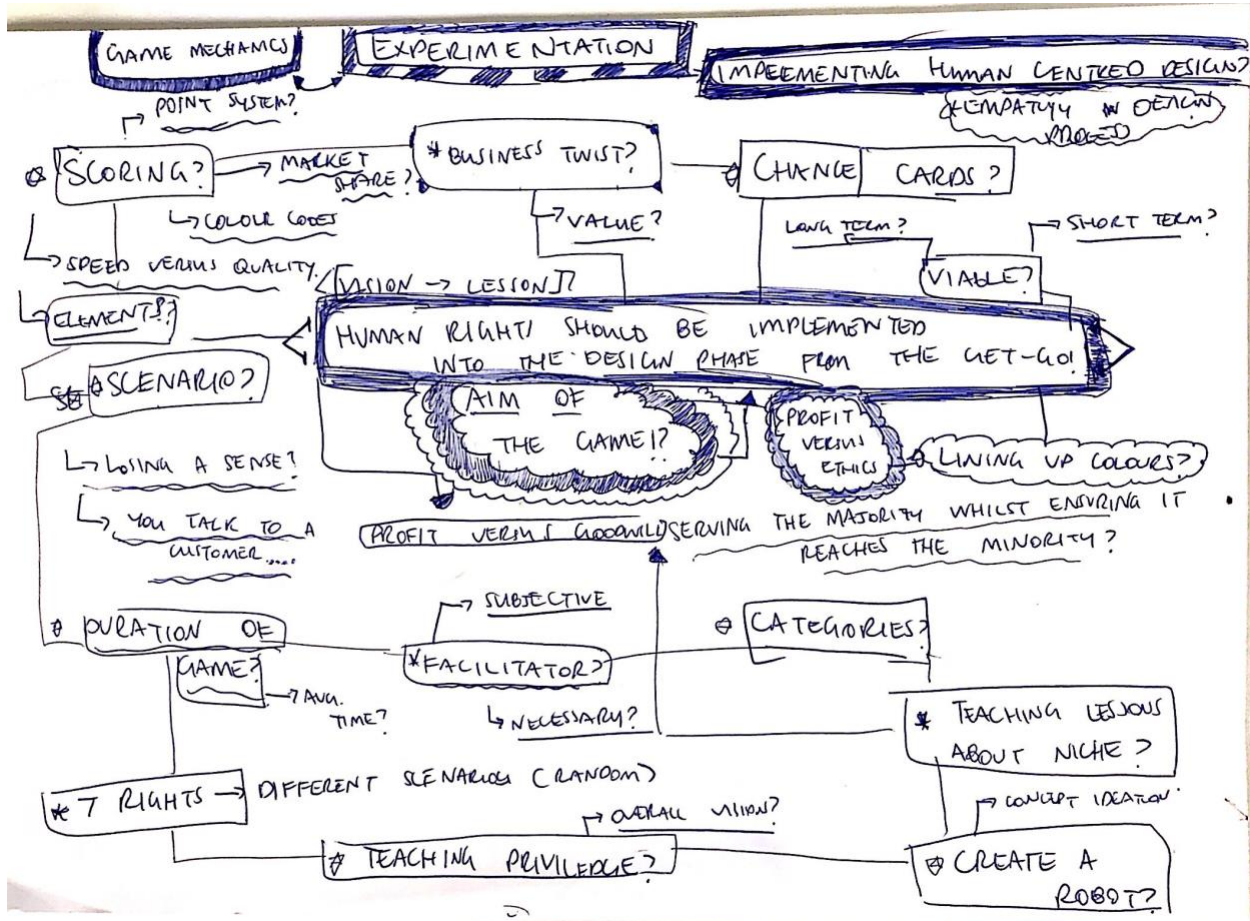 GAME MECHANICS
EXPERIMENTATION
IMPLEMENTING HUMAN CENTRED DESIGN?
*EMPATHY IN DESIGN
PROCESS
POINT SYSTEM?
SCORING?
MARKET
SHARE?
* BUSINESS TWIST?
CHANGE CARDS?
COLOUR CODES
VALUE?
LONG TERM?
SHORT TERM?
VIABLE?
SPEED VERSUS QUALITY.
[VISION → LESSON]?
ELEMENTS?
HUMAN RIGHTS SHOULD BE IMPLEMENTED
INTO THE DESIGN PHASE FROM THE GET-GO!
SCENARIO?
AIM OF
THE GAME!?
PROFIT
VERSUS
ETHICS
LINING UP COLOURS?
LOSING A SENSE?
YOU TALK TO A
CUSTOMER....
PROFIT VERSUS GOODWILL
SERVING THE MAJORITY WHILST ENSURING IT
REACHES THE MINORITY?
DURATION OF
GAME?
AVG.
TIME?
SUBJECTIVE
*FACILITATOR?
NECESSARY?
CATEGORIES?
* TEACHING LESSONS
ABOUT NICHE?
* 7 RIGHTS → DIFFERENT SCENARIOS (RANDOM)
OVERALL VISION?
* TEACHING PRIVILEDGE?
CONCEPT IDEATION
CREATE A
ROBOT?